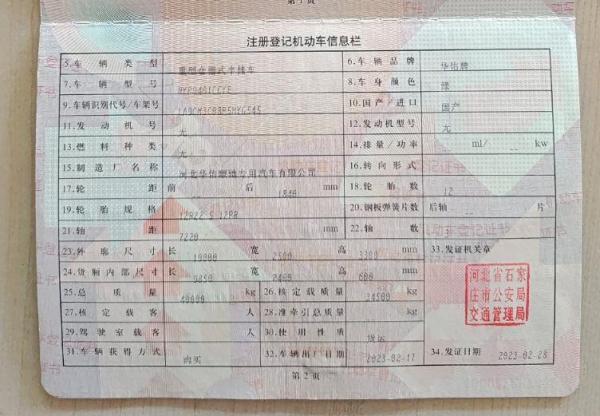 第1页
注册登记机动车信息栏
5.车辆类型 重型仓栅式半挂车 6.车辆品牌 华佑牌
7.车辆型号 8.车身颜色 绿
9.车辆识别代号/车架号 10.国产/进口 国产
11.发动机号 无 12.发动机型号 无
13.燃料种类 无 14.排量/功率 ml/ kw
15.制造厂名称 专用汽车有限公司 16.转向形式
17.轮距 前 后 1840 mm 18.轮胎数 12
19.轮胎规格 12R22.5 12PR 20.钢板弹簧片数 后轴 片
21.轴距 7220 mm 22.轴数
23.外廓尺寸 长 宽 2500 高 3300 mm 33.发证机关章
24.货厢内部尺寸 长 宽 2400 高 600 mm
河北省石家
庄市公安局
交通管理局
25.总质量 40000 kg 26.核定载质量 34500 kg
27.核定载客 人 28.准牵引总质量 kg
29.驾驶室载客 人 30.使用性质 货运
31.车辆获得方式 购买 32.车辆出厂日期 2023-02-17 34.发证日期 2023-02-28
第2页